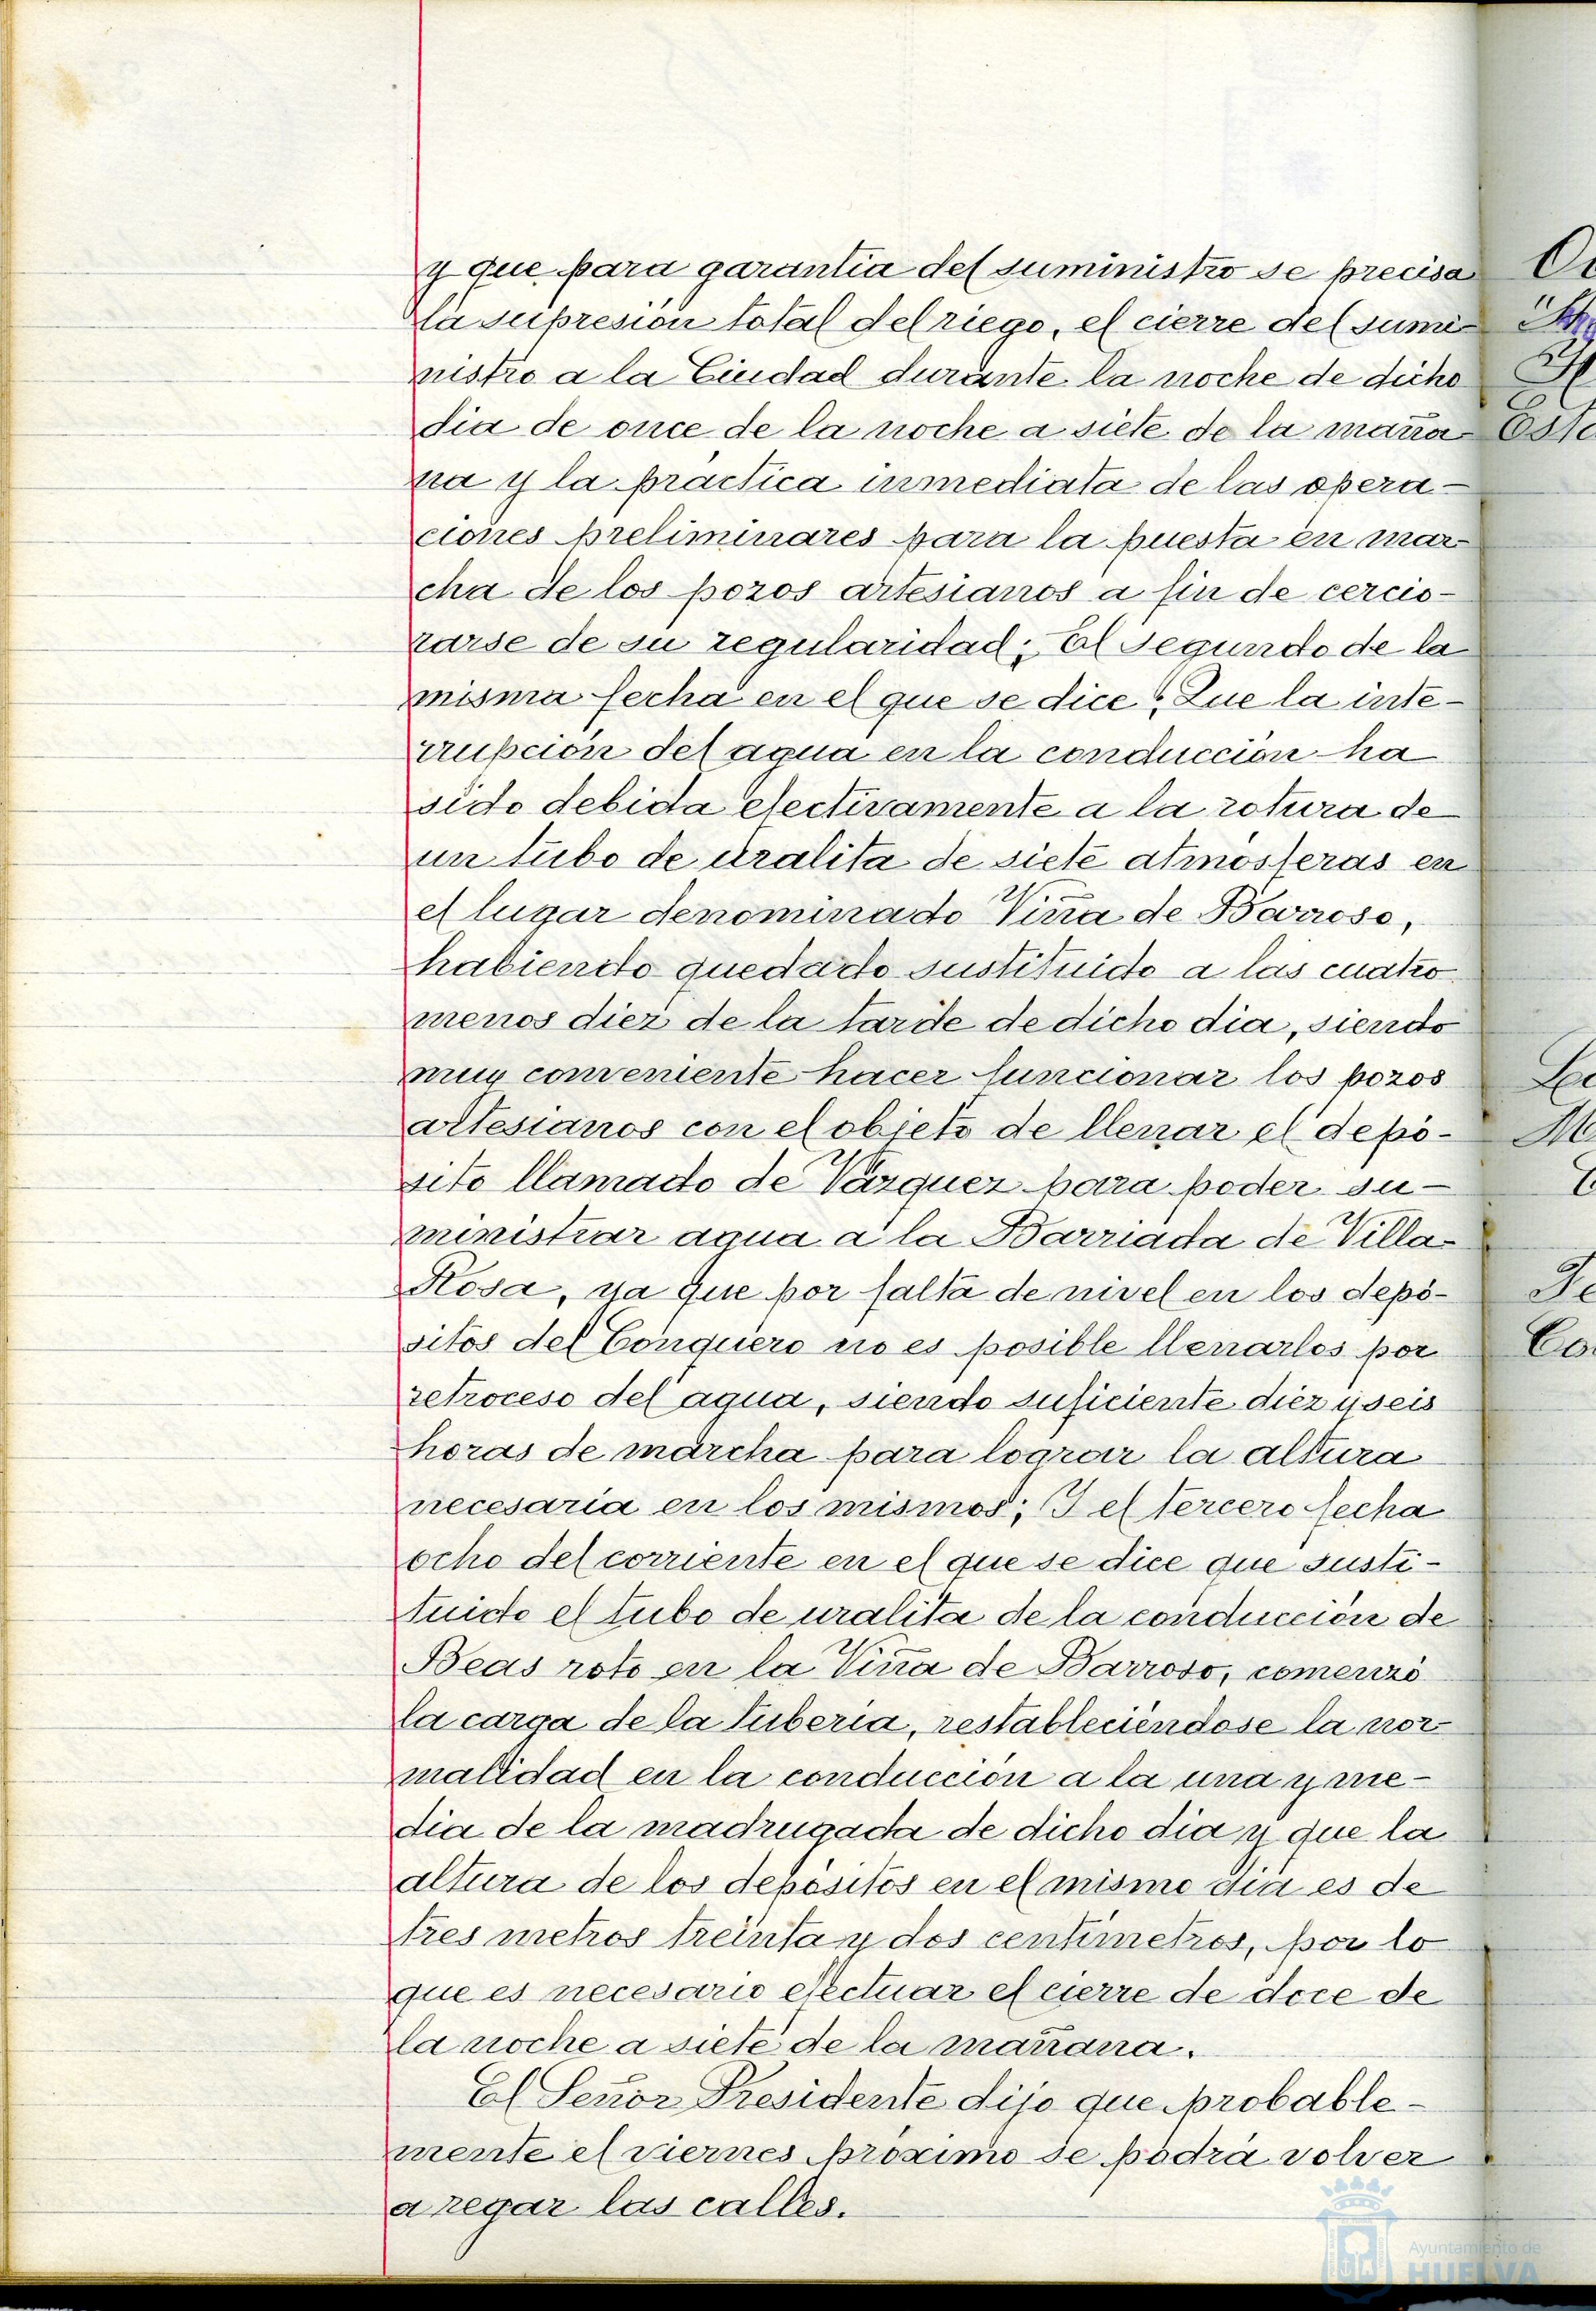 y que para garantia del suministro se precisa
la supresion total del riego, el cierre del sumi-
nistro a la Ciudad durante la noche de dicho
dia de once de la noche a siete de la maña-
na y la practica inmediata de las opera-
ciones preliminares para la puesta en mar-
cha de los pozos artesianos a fin de cercio-
rarse de su regularidad; El segundo de la
misma fecha en el que se dice: Que la inte-
rrupción del agua en la conducción ha
sido debida efectivamente a la rotura de
un tubo de uralita de siete atmosferas en
el lugar denominado Viña de Barroso,
habiendo quedado sustituido a las cuatro
menos diez de la tarde de dicho dia, siendo
muy conveniente hacer funcionar los pozos
artesianos con el objeto de llenar el depó-
sito llamado de Vázquez para poder su-
ministrar agua a la Barriada de Villa-
Rosa, ya que por falta de nivel en los depó-
sitos del Conquero no es posible llenarlos por
retroceso del agua, siendo suficiente diez y seis
horas de marcha para lograr la altura
necesaria en los mismos; Y el tercero fecha
ocho del corriente en el que se dice que susti-
tuido el tubo de uralita de la conducción de
Beas roto en la Viña de Barroso, comenzó
la carga de la tuberia, restableciéndose la nor-
malidad en la conducción a la una y me-
dia de la madrugada de dicho dia y que la
altura de los depósitos en el mismo dia es de
tres metros treinta y dos centímetros, por lo
que es necesario efectuar el cierre de doce de
la noche a siete de la mañana.
El Señor Presidente dijo que probable-
mente el viernes próximo se podrá volver
a regar las calles.
Ayuntamiento de
HUELVA